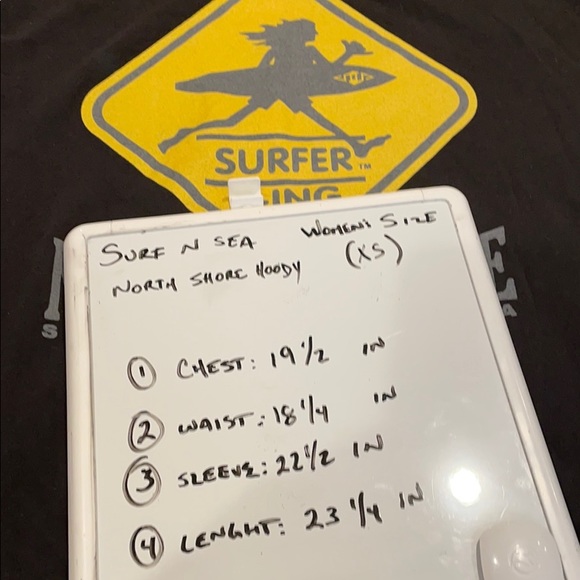 SURFER™
ING
SURF N SEA WOMEN'S SIZE
NORTH SHORE HOODY (XS)
① CHEST: 19 1/2 IN
② WAIST: 18 1/4 IN
③ SLEEVE: 22 1/2 IN
④ LENGHT: 23 1/4 IN